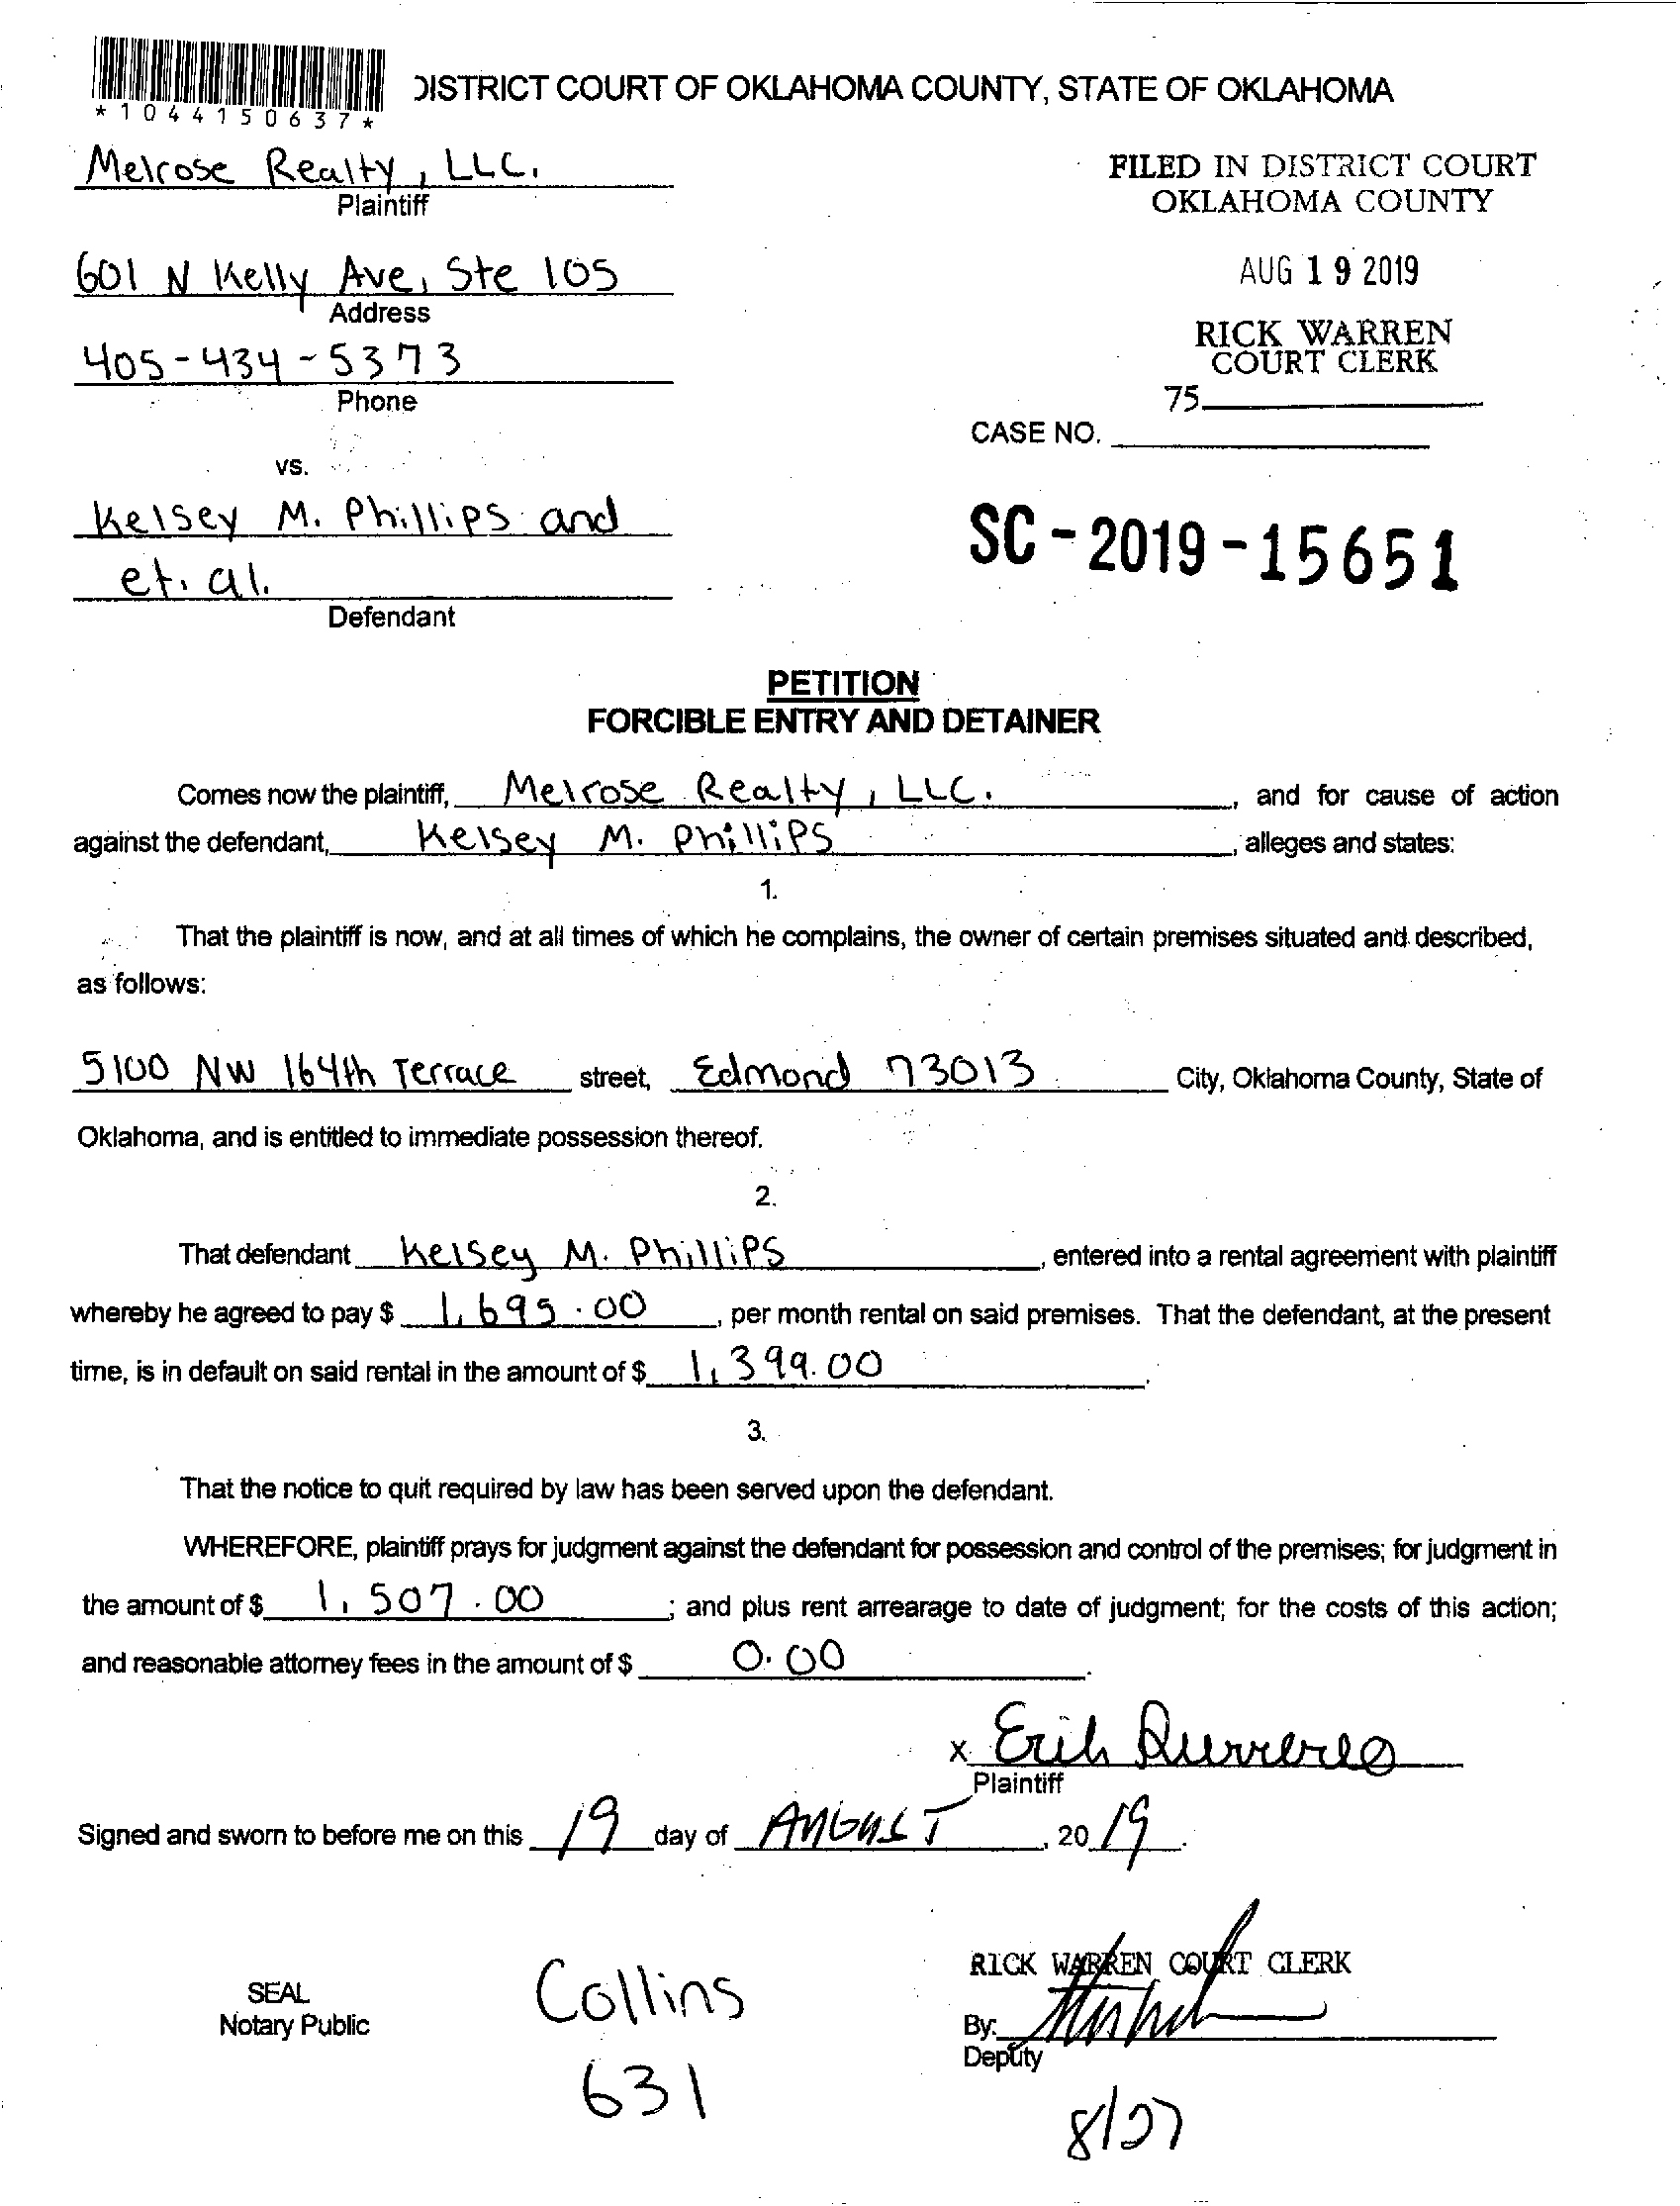 *1044150637*
DISTRICT COURT OF OKLAHOMA COUNTY, STATE OF OKLAHOMA
Melrose Realty, LLC.
Plaintiff
FILED IN DISTRICT COURT
OKLAHOMA COUNTY
601 N Kelly Ave, Ste 105
Address
AUG 19 2019
405-434-5373
Phone
RICK WARREN
COURT CLERK
75
CASE NO.
vs.
Kelsey M. Phillips and
et. al.
Defendant
SC-2019-15651
PETITION
FORCIBLE ENTRY AND DETAINER
Comes now the plaintiff, Melrose Realty, LLC. , and for cause of action
against the defendant, Kelsey M. Phillips , alleges and states:
1.
That the plaintiff is now, and at all times of which he complains, the owner of certain premises situated and described,
as follows:
5100 NW 164th Terrace street, Edmond 73013 City, Oklahoma County, State of
Oklahoma, and is entitled to immediate possession thereof.
2.
That defendant Kelsey M. Phillips , entered into a rental agreement with plaintiff
whereby he agreed to pay $ 1,695.00 , per month rental on said premises. That the defendant, at the present
time, is in default on said rental in the amount of $ 1,399.00 .
3.
That the notice to quit required by law has been served upon the defendant.
WHEREFORE, plaintiff prays for judgment against the defendant for possession and control of the premises; for judgment in
the amount of $ 1,507.00 ; and plus rent arrearage to date of judgment; for the costs of this action;
and reasonable attorney fees in the amount of $ 0.00 .
x
Plaintiff
Signed and sworn to before me on this 19 day of AUGUST , 20 19 .
SEAL
Notary Public
Collins
631
RICK WARREN COURT CLERK
By:
Deputy
8/27